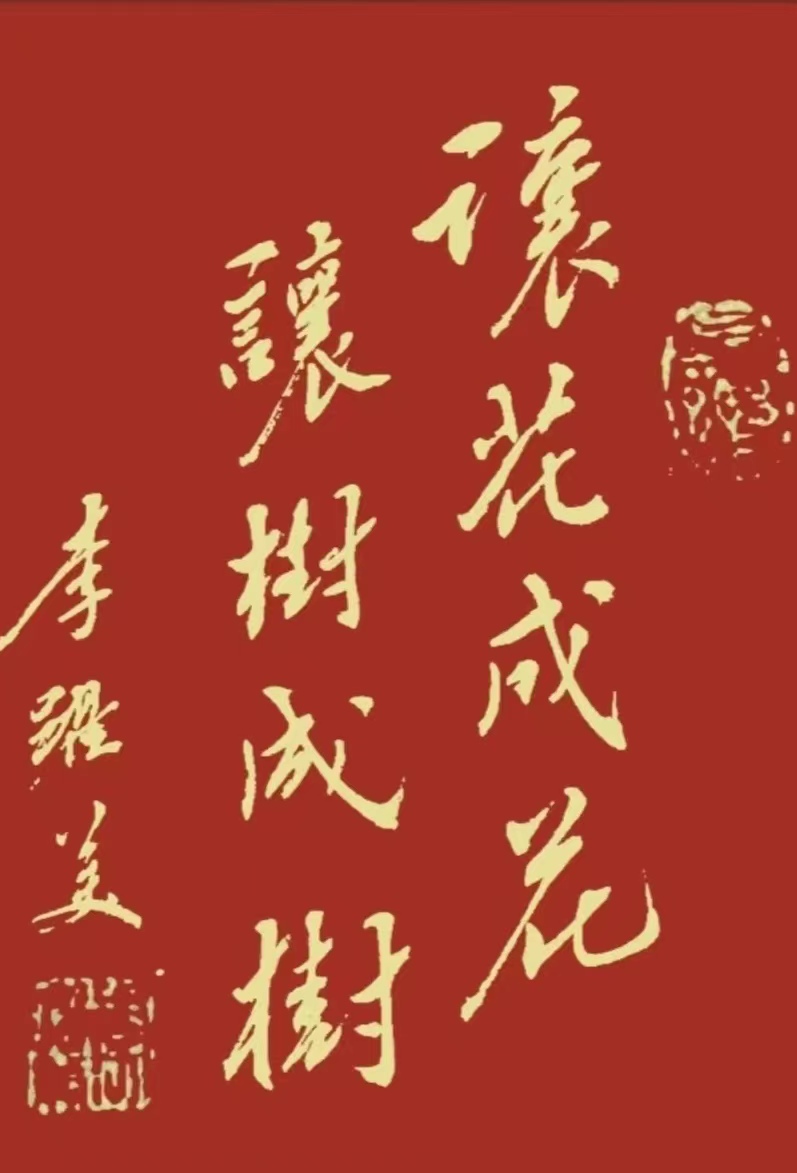 讓花成花
讓樹成樹
李躍美